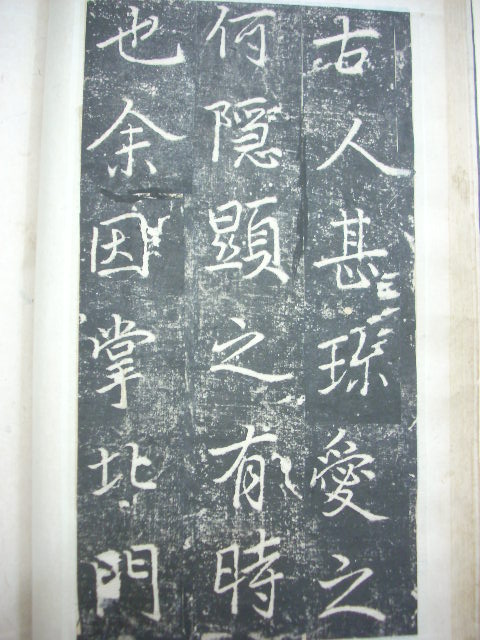 古人甚珎愛之
何隠顕之有時
也余因掌北門